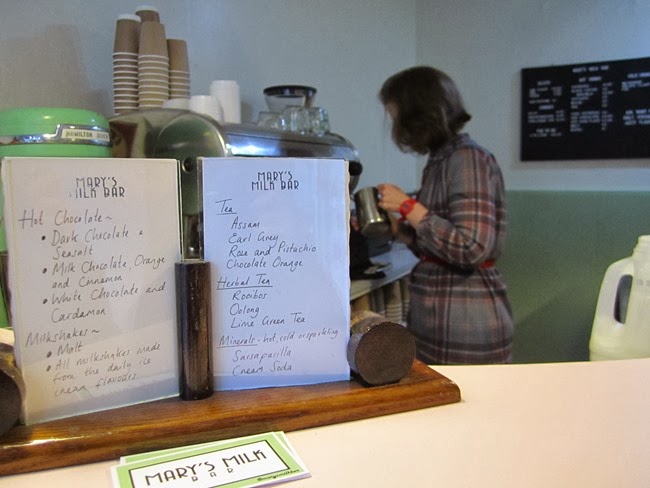 HAMILTON BEACH
MARY'S
MILK BAR
Hot Chocolate~
• Dark Chocolate &
Seasalt
• Milk Chocolate, Orange
and Cinnamon
• White Chocolate and
Cardamon
Milkshakes~
• Malt
• All milkshakes made
from the daily ice
cream flavours.
MARY'S
MILK BAR
Tea
Assam
Earl Grey
Rose and Pistachio
Chocolate Orange
Herbal Tea
Rooibos
Oolong
Lime Green Tea
Minerals - hot, cold or sparkling
Sarsaparilla
Cream Soda
MARY'S MILK
BAR
MARY'S MILK BAR